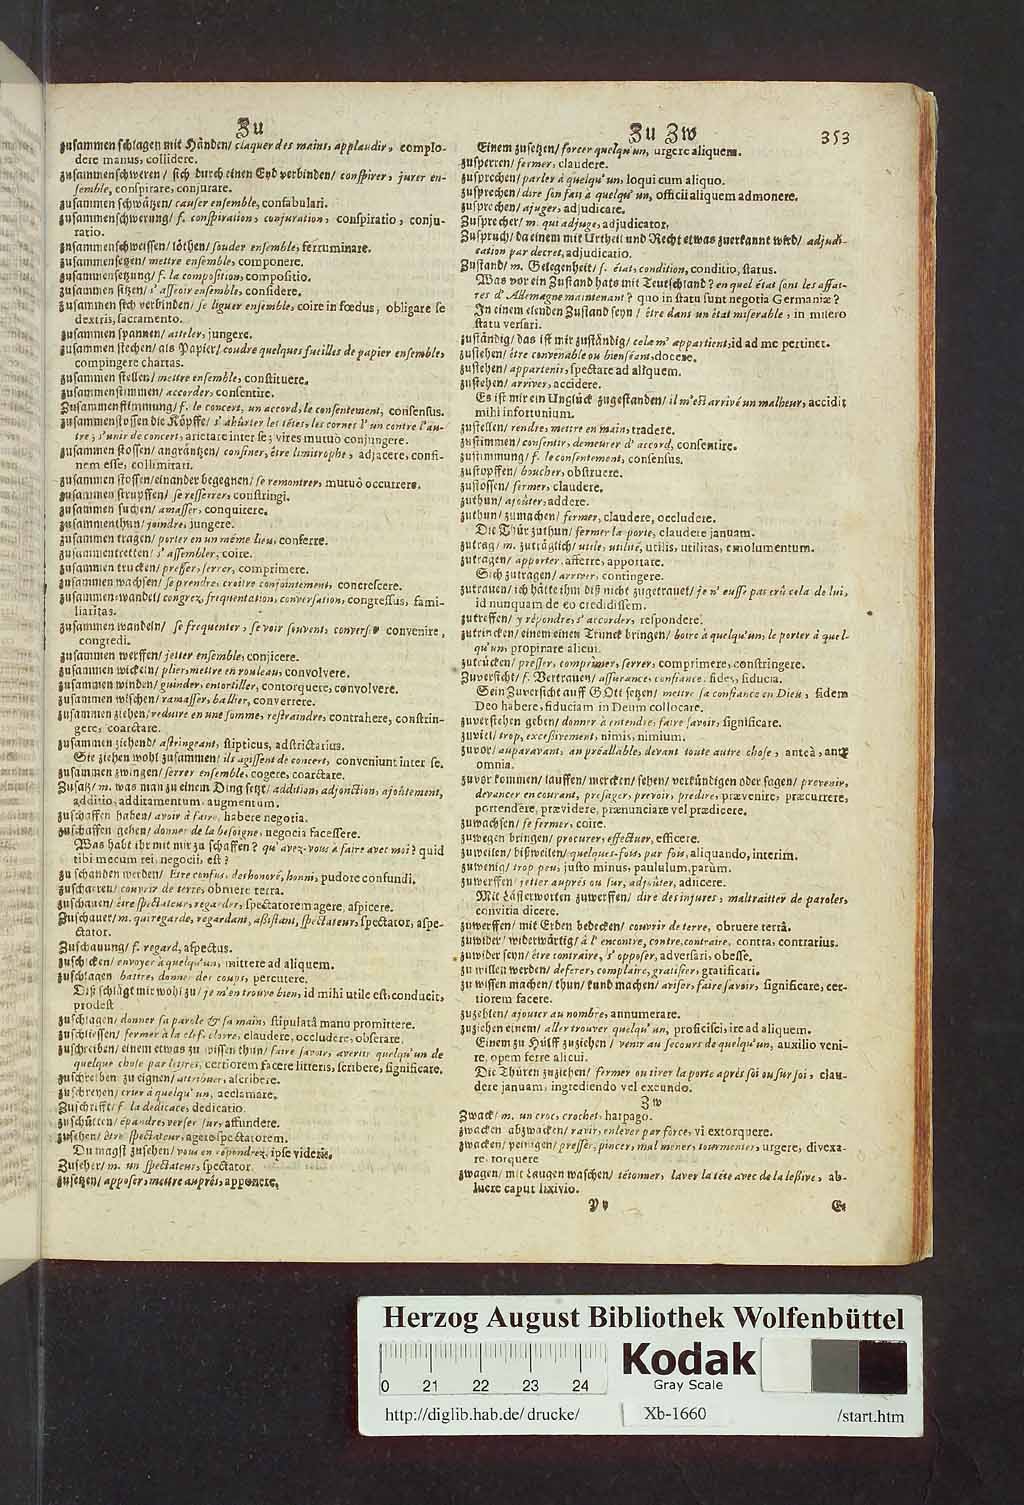 Zu
zusammen schlagen mit Händen/ claquer des mains, applaudir, complo-
dere manus, collidere.
zusammenschweren/ sich durch einen Eyd verbinden/ conspirer, jurer en-
semble, conspirare, conjurare.
zusammen schwätzen/ causer ensemble, confabulari.
zusammenschwerung/ f. conspiration, conjuration, conspiratio, conju-
ratio.
zusammenschweissen/ löthen/ souder ensemble, ferruminare.
zusammensetzen/ mettre ensemble, componere.
zusammensetzung/ f. la composition, compositio.
zusammen sitzen/ s' asseoir ensemble, considere.
zusammen sich verbinden/ se liguer ensemble, coire in fœdus, obligare se
dextris, sacramento.
zusammen spannen/ atteler, jungere.
zusammen stechen/ als Papier/ coudre quelques fueilles de papier ensemble,
compingere chartas.
zusammen stellen/ mettre ensemble, constituere.
zusammenstimmen/ accorder, consentire.
Zusammenstimmung/ f. le concert, un accord, le consentement, consensus.
zusammenstossen die Köpffe/ s' ahürter les têtes, les cornes l' un contre l' au-
tre, s'unir de concert, arietare inter se, vires mutuò conjungere.
zusammen stossen/ angräntzen/ confiner, être limitrophe, adjacere, confi-
nem esse, collimitari.
zusammen stossen/ einander begegnen/ se remontrer, mutuò occurrere.
zusammen strupffen/ se resserrer, constringi.
zusammen suchen/ amasser, conquirere.
zusammenthun/ joindre, jungere.
zusammen tragen/ porter en un même lieu, conferre.
zusammentretten/ s' assembler, coire.
zusammen trucken/ presser, serrer, comprimere.
zusammen wachsen/ se prendre, croître conjointement, concrescere.
zusammen-wandel/ congrez, frequentation, conversation, congressus, fami-
liaritas.
zusammen wandeln/ se frequenter, se voir souvent, converser convenire,
congredi.
zusammen werffen/ jetter ensemble, conjicere.
zusammen wickeln/ plier, mettre en rouleau, convolvere.
zusammen winden/ guinder, entortiller, contorquere, convolvere.
zusammen wischen/ ramasser, ballier, converrere.
zusammen ziehen/ reduire en une somme, restraindre, contrahere, constrin-
gere, coarctare.
zusammen ziehend/ astringeant, stipticus, adstrictarius.
Sie ziehen wohl zusammen/ ils agissent de concert, conveniunt inter se.
zusammen zwingen/ serrer ensemble, cogere, coarctare.
Zusatz/ m. was man zu einem Ding setzt/ addition, adjonction, ajoûtement,
additio, additamentum, augmentum.
zuschaffen haben/ avoir à faire, habere negotia.
zuschaffen geben/ donner de la besoigne, negocia facessere.
Was habt ihr mit mir zu schaffen? qu' avez-vous à faire avec moi? quid
tibi mecum rei, negocii, est?
zu schanden werden/ Etre confus, deshonoré, honni, pudore confundi.
zuscharren/ couvrir de terre, obruere terra.
zuschauen/ être spectateur, regarder, spectatorem agere, aspicere.
Zuschauer/ m. qui regarde, regardant, assistant, spectateur, spectator, aspe-
ctator.
Zuschauung/ f. regard, aspectus.
zuschicken/ envoyer à quelqu' un, mittere ad aliquem.
zuschlagen battre, donner des coups, percutere.
Diß schlägt mir wohl zu/ je m'en trouve bien, id mihi utile est, conducit,
prodest.
zuschlagen/ donner sa parole & sa main, stipulatâ manu promittere.
zuschliessen/ fermer à la clef, clorre, claudere, occludere, obserare.
zuschreiben/ einem etwas zu wissen thun/ faire savoir, avertir quelqu'un de
quelque chose par lettres, certiorem facere litteris, scribere, significare.
zuschreiben/ zu eignen/ attribuer, ascribere.
zuschreyen/ crier à quelqu' un, acclamare.
Zuschrifft/ f. la dedicace, dedicatio.
zuschütten/ épandre, verser sur, affundere.
zusehen/ être spectateur, agere spectatorem.
Du magst zusehen/ vous en répondrez, ipse videris.
Zuseher/ m. un spectateur, spectator.
zusetzen/ apposer, mettre auprés, apponere.
Zu Zw 353
Einem zusetzen/ forcer quelqu'un, urgere aliquem.
zusperren/ fermer, claudere.
zusprechen/ parler à quelqu' un, loqui cum aliquo.
zusprechen/ dire son fait à quelqu' un, officii aliquem admonere.
zusprechen/ ajuger, adjudicare.
Zusprecher/ m. qui adjuge, adjudicator.
Zuspruch/ da einem mit Urtheil und Recht etwas zuerkannt wird/ adjudi-
cation par decret, adjudicatio.
Zustand/ m. Gelegenheit/ f. état, condition, conditio, status.
Was vor ein Zustand hats mit Teutschland? en quel état sont les affai-
res d' Allemagne maintenant? quo in statu sunt negotia Germaniæ?
In einem elenden Zustand seyn/ être dans un état miserable, in misero
statu versari.
zuständig/ das ist mir zuständig/ cela m' appartient, id ad me pertinet.
zustehen/ être convenable ou bienséant, docere.
zustehen/ appartenir, spectare ad aliquem.
zustehen/ arriver, accidere.
Es ist mir ein Unglück zugestanden/ il m'est arrivé un malheur, accidit
mihi infortunium.
zustellen/ rendre, mettre en main, tradere.
zustimmen/ consentir, demeurer d' accord, consentire.
zustimmung/ f. le consentement, consensus.
zustopffen/ boucher, obstruere.
zustossen/ fermer, claudere.
zuthun/ ajoûter, addere.
zuthun/ zumachen/ fermer, claudere, occludere.
Die Thür zuthun/ fermer la porte, claudere januam.
zutrag/ m. zuträglich/ utile, utilité, utilis, utilitas, emolumentum.
zutragen/ apporter, afferre, apportare.
Sich zutragen/ arriver, contingere.
zutrauen/ ich hätte ihm diß nicht zugetrauet/ je n' eusse pas crû cela de lui,
id nunquam de eo credidissem.
zutreffen/ y répondre, s' accorder, respondere.
zutrincken/ einem einen Trunck bringen/ boire à quelqu'un, le porter à quel-
qu'un, propinare alicui.
zutrücken/ presser, comprimer, serrer, comprimere, constringere.
Zuversicht/ f. Vertrauen/ assurance, confiance, fides, fiducia.
Sein Zuversicht auff GOtt setzen/ mettre sa confiance en Dieu, fidem
Deo habere, fiduciam in Deum collocare.
zuverstehen geben/ donner à entendre, faire savoir, significare.
zuviel/ trop, excessivement, nimis, nimium.
zuvor/ auparavant, au préallable, devant toute autre chose, anteà, ante
omnia.
zuvor kommen/ lauffen/ mercken/ sehen/ verkündigen oder sagen/ prevenir,
devancer en courant, presager, prevoir, predire, prævenire, præcurrere,
portendere, prævidere, prænunciare vel prædicere.
zuwachsen/ se fermer, coire.
zuwegen bringen/ procurer, effectuer, efficere.
zuweilen/ bißweilen/ quelques-fois, par fois, aliquando, interim.
zuwenig/ trop peu, justo minus, paululum, parùm.
zuwerffen/ jetter auprés ou sur, adjoûter, adjicere.
Mit Lästerworten zuwerffen/ dire des injures, maltraitter de paroles,
convitia dicere.
zuwerffen/ mit Erden bedecken/ couvrir de terre, obruere terrâ.
zuwider/ widerwärtig/ à l' encontre, contre, contraire, contra, contrarius.
zuwider seyn/ être contraire, s' opposer, adversari, obesse.
zu wissen werden/ deferer, complaire, gratifier, gratificari.
zu wissen machen/ thun/ kund machen/ aviser, faire savoir, significare, cer-
tiorem facere.
zuzehlen/ ajouter au nombre, annumerare.
zuziehen einem/ aller trouver quelqu' un, proficisci, ire ad aliquem.
Einem zu Hülff zuziehen/ venir au secours de quelqu'un, auxilio veni-
re, opem ferre alicui.
Die Thüren zuziehen/ fermer ou tirer la porte aprés soi ou sur soi, clau-
dere januam, ingrediendo vel exeundo.
Zw
Zwack/ m. un croc, crochet, harpago.
zwacken abzwacken/ ravir, enlever par force, vi extorquere.
zwacken/ peinigen/ presser, pincer, mal mener, tourmenter, urgere, divexa-
re, torquere
zwagen/ mit Laugen waschen/ têtonner, laver la tête avec de la lessive, ab-
luere caput lixivio.
Yy E
Herzog August Bibliothek Wolfenbüttel
Kodak
Gray Scale
0 21 22 23 24
http://diglib.hab.de/drucke/ Xb-1660 /start.htm